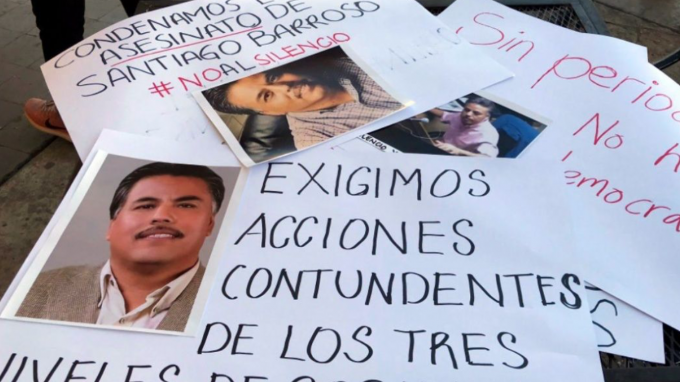 CONDENAMOS E
ASESINATO DE
SANTIAGO BARROSO
#NO AL SILENCIO
Sin period
No h
emocra
EXIGIMOS
ACCIONES
CONTUNDENTES
DE LOS TRES
NIVELES DE